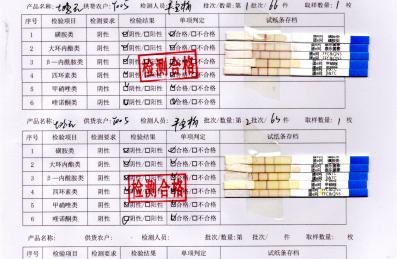 产品名称: 供货农户: 检测人员: 批次/数量:第1批次/66件 取样数量:1枚
序号 检验项目 检测要求 检验结果 单项判定 试纸条存档
1 磺胺类 阴性 ☑阴性/☐阳性 ☑合格/☐不合格
2 大环内酯类 阴性 ☑阴性/☐阳性 ☑合格/☐不合格
3 β—内酰胺类 阴性 ☑阴性/☐阳性 ☑合格/☐不合格
4 四环素类 阴性 ☑阴性/☐阳性 ☑合格/☐不合格
5 甲硝唑类 阴性 ☑阴性/☐阳性 ☑合格/☐不合格
6 喹诺酮类 阴性 ☑阴性/☐阳性 ☑合格/☐不合格
检测合格
产品名称: 供货农户: 检测人员: 批次/数量:第2批次/65件 取样数量:1枚
序号 检验项目 检测要求 检验结果 单项判定 试纸条存档
1 磺胺类 阴性 ☑阴性/☐阳性 ☑合格/☐不合格
2 大环内酯类 阴性 ☑阴性/☐阳性 ☑合格/☐不合格
3 β—内酰胺类 阴性 ☑阴性/☐阳性 ☑合格/☐不合格
4 四环素类 阴性 ☑阴性/☐阳性 ☑合格/☐不合格
5 甲硝唑类 阴性 ☑阴性/☐阳性 ☑合格/☐不合格
6 喹诺酮类 阴性 ☑阴性/☐阳性 ☑合格/☐不合格
检测合格
产品名称: 供货农户: 检测人员: 批次/数量:第 批次/ 件 取样数量: 枚
序号 检验项目 检测要求 检验结果 单项判定 试纸条存档